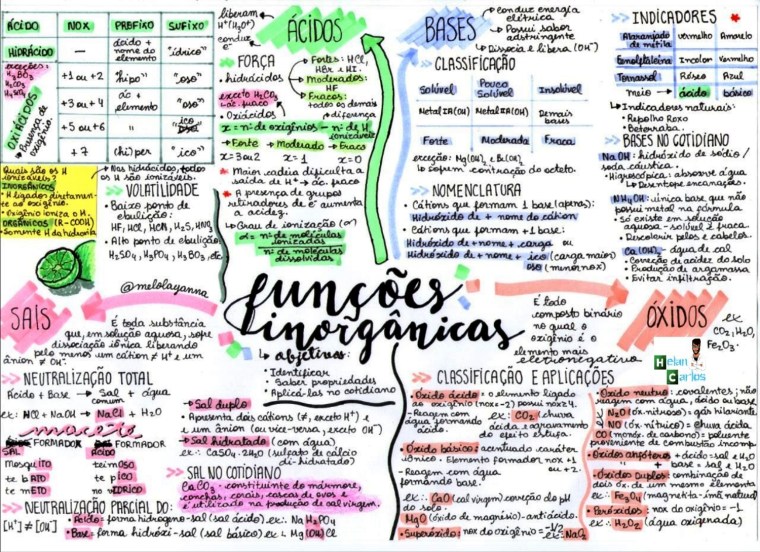 ÁCIDO NOX PREFIXO SUFIXO
HIDRÁCIDO — ácido + nome do elemento "ídrico"
exceções:
H₃BO₃
H₂CO₃
H₄SiO₄
OXIÁCIDOS
Presença de oxigênio.
+1 ou +2 "hipo" "oso"
+3 ou +4 ác + elemento "oso"
+5 ou +6 " "ico"
+7 (hi)per "ico"
liberam
H⁺(H₃O⁺)
conduz
e⁻
ÁCIDOS
FORÇA
• hidrácidos
Fortes: HCl, HBr e HI.
Moderados: HF
Fracos: todos os demais
exceto H₂CO₃
• Oxiácidos
diferença
x = nº de oxigênios - nº de H ionizáveis
Forte → Moderado → Fraco
x = 3 ou 2 x = 1 x = 0
Maior cadeia dificulta a saída de H⁺ → ác. fraco
A presença de grupos retiradores de e⁻ aumenta a acidez.
Grau de ionização (α)
α = nº de moléculas ionizadas
nº de moléculas dissolvidas
Quais são os H ionizáveis?
INORGÂNICOS
• H ligados diretamente ao oxigênio.
• Oxigênio ioniza o H.
ORGÂNICOS (R-COOH)
• Somente H da hidroxila
Nos hidrácidos, todos os H são ionizáveis.
VOLATILIDADE
• Baixo ponto de ebulição:
HF, HCl, HCN, H₂S, HNO₃
• Alto ponto de ebulição:
H₂SO₄, H₃PO₄, H₃BO₃, etc
@melolayanna
BASES
conduz energia elétrica
Possui sabor adstringente
Dissocia e libera (OH⁻)
CLASSIFICAÇÃO
Solúvel Pouco Solúvel Insolúvel
Metal IA(OH) Metal IIA(OH) Demais bases
Forte Moderada Fraca
exceção: Mg(OH)₂ e Be(OH)₂
↳ sofrem contração do octeto.
NOMENCLATURA
Cátions que formam 1 base (apenas):
Hidróxido de + nome do cátion
Cátions que formam +1 base:
Hidróxido de + nome + carga ou
Hidróxido de + nome + ico (carga maior)
oso (menor nox)
INDICADORES
Alaranjado de metila Vermelho Amarelo
Fenolftaleína Incolor Vermelho
Tornassol Róseo Azul
meio → ácido básico
Indicadores naturais:
• Repolho Roxo
• Beterraba.
BASES NO COTIDIANO
NaOH: hidróxido de sódio/ soda cáustica.
• Higroscópica: absorve água
↳ Desentope encanações.
NH₄OH: única base que não possui metal na fórmula
• Só existe em solução aquosa - solúvel e fraca.
• Descolorir pelos e cabelos.
Ca(OH)₂ - água de cal
• Correção de acidez do solo
• Produção de argamassa
• Evitar infiltração.
funções inorgânicas
↳ objetivos:
• Identificar
• Saber propriedades
• Aplicá-las no cotidiano
SAIS
É toda substância que, em solução aquosa, sofre dissociação iônica liberando pelo menos um cátion ≠ H⁺ e um ânion ≠ OH⁻.
NEUTRALIZAÇÃO TOTAL
Ácido + Base → Sal + água
comum
ex: HCl + NaOH → NaCl + H₂O
macete
FORMADOR FORMADOR
SAL ÁCIDO
mosquITO teimOSO
te bATO te pICO
te mETO no vIDRICO
NEUTRALIZAÇÃO PARCIAL DO:
[H⁺] ≠ [OH⁻]
• Ácido = forma hidrogeno-sal (sal ácido). ex: NaH₂PO₄
• Base = forma hidróxi-sal (sal básico). ex: Mg(OH)Cl
→ Sal duplo
• Apresenta dois cátions (≠, exceto H⁺) e um ânion (ou vice-versa, exceto OH⁻)
→ Sal hidratado (com água)
ex: CaSO₄·2H₂O (sulfato de cálcio di-hidratado)
SAL NO COTIDIANO
CaCO₃ - constituinte do mármore, conchas, corais, cascas de ovos e é utilizado na produção de sal virgem.
ÓXIDOS
É todo composto binário no qual o oxigênio é o elemento mais eletronegativo
ex:
CO₂, H₂O,
Fe₂O₃.
Helan Carlos
CLASSIFICAÇÃO E APLICAÇÕES
• Óxido ácido = o elemento ligado ao oxigênio (nox = -2) possui nox ≥ 4.
- Reagem com água formando ácido.
ex: CO₂: chuva ácida e agravamento do efeito estufa.
• Óxido básico: acentuado caráter iônico. Elemento formador nox +1 ou +2.
- Reagem com água formando base.
ex: CaO (cal virgem) correção do pH do solo.
MgO (óxido de magnésio) - antiácido.
• Superóxido: nox do oxigênio = -1/2
• Óxido neutro: covalentes; não reagem com água, ácido ou base.
ex: N₂O (óx. nitroso): gás hilariante
NO (óx. nítrico) = chuva ácida
CO (monóx. de carbono) = poluente proveniente de combustão incomp.
• Óxidos anfóteros + ácido = sal e H₂O
" + base = sal e H₂O
• Óxidos duplos: combinação de dois óx. de um mesmo elemento
ex: Fe₃O₄ (magnetita - ímã natural)
• Peróxidos: nox do oxigênio = -1
ex: H₂O₂ (água oxigenada)